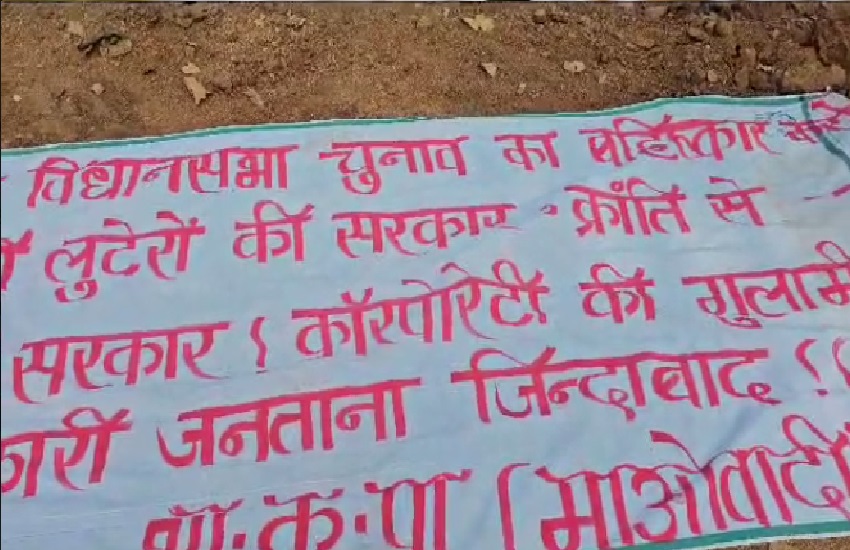 विधानसभा चुनाव का बहिष्कार
लुटेरों की सरकार - क्रांति से
सरकार ! कॉरपोरेटी की गुलामी
जनताना जिन्दाबाद !
भा.क.पा (माओवादी)